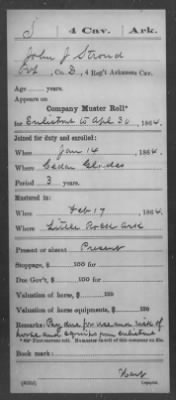 S | 4 Cav. | Ark.
John J Stroud
Pvt, Co. D, 4 Reg't Arkansas Cav.
Age years.
Appears on
Company Muster Roll*
for Enlistment to Apl 30, 1864.
Joined for duty and enrolled:
When Jan 14, 1864.
Where Cedar Glades
Period 3 years.
Mustered in:
When Feb 17, 1864.
Where Little Rock Ark
Present or absent Present
Stoppage, $ 100 for
Due Gov't, $ 100 for
Valuation of horse, $ 100
Valuation of horse equipments, $ 100
Remarks: Pay due for use and risk of
horse and equipts from enlistment
Book mark:
Copyist.